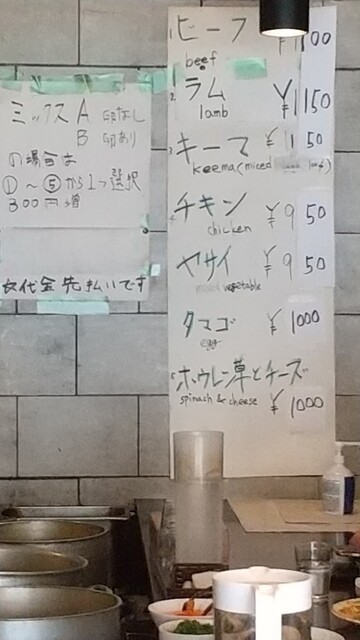 ミックス A 卵なし
B 卵あり
の場合は
①～⑤から1つ選択
300円増
代金先払いです
ビーフ
beef
2. ラム ¥1150
lamb
キーマ ¥1 50
keema (miced
チキン ¥950
chicken
ヤサイ ¥950
vegetable
タマゴ ¥1000
egg
5. ホウレン草とチーズ
spinach & cheese ¥1000